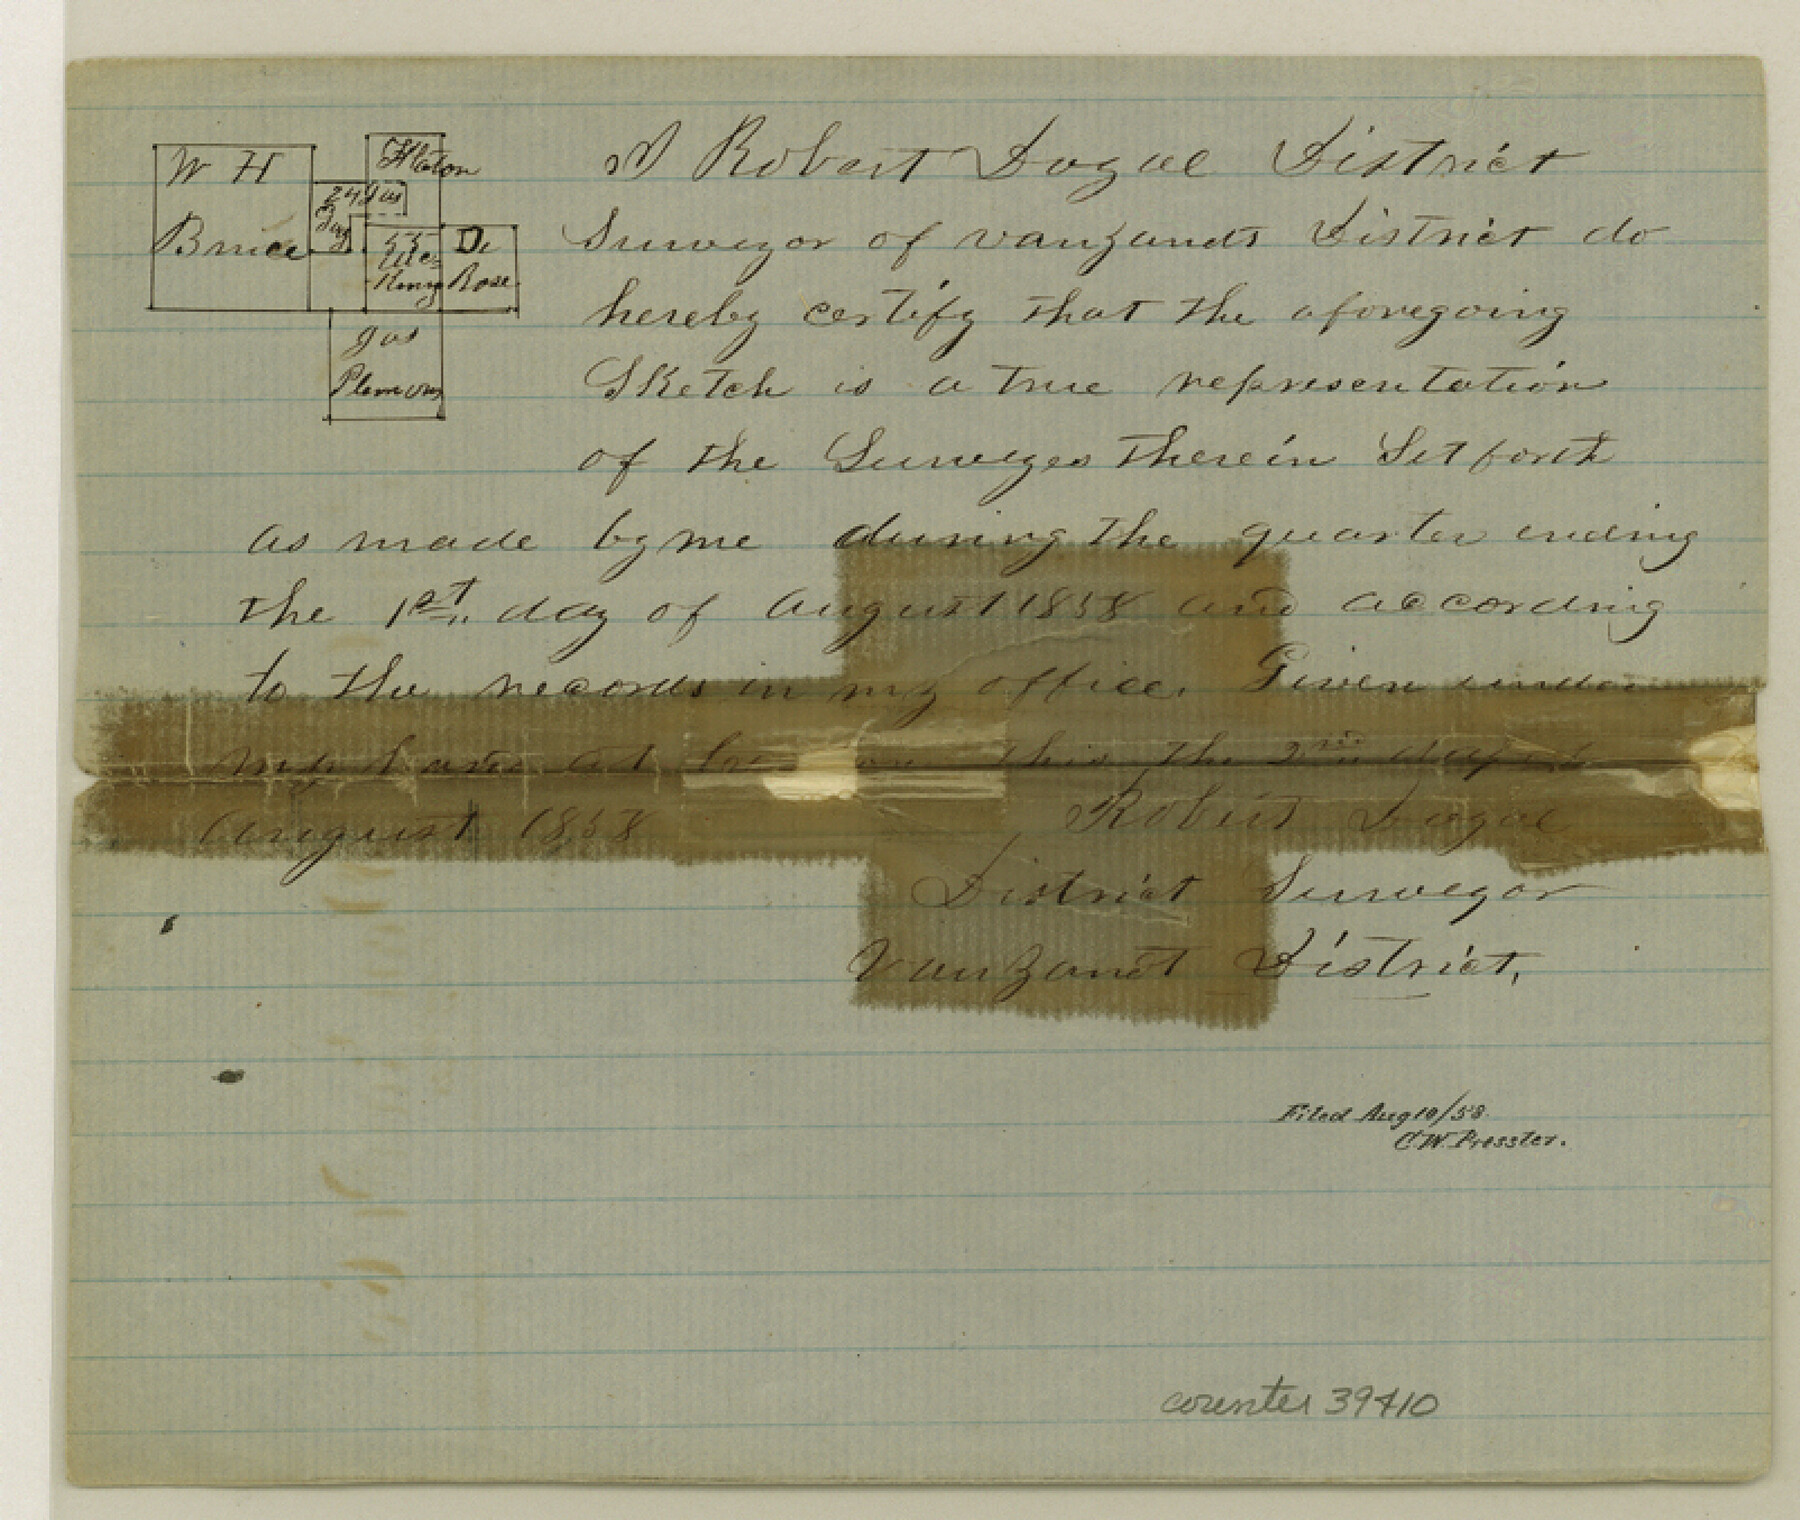 W H
Bruce
I Robert Dogae District
Surveyor of vanzandt District do
hereby certify that the aforegoing
Sketch is a true representation
of the Surveyes therein Set forth
as made by me during the quarter ending
the 1st day of August 1858 and according
to the records in my office. Given under
my hand at this the 2nd day of
August 1858 Robert Dogae
District Surveyor
Vanzandt District.
De
Rose
Jas
Filed Aug 10/58.
C.W. Pressler.
counter 39410